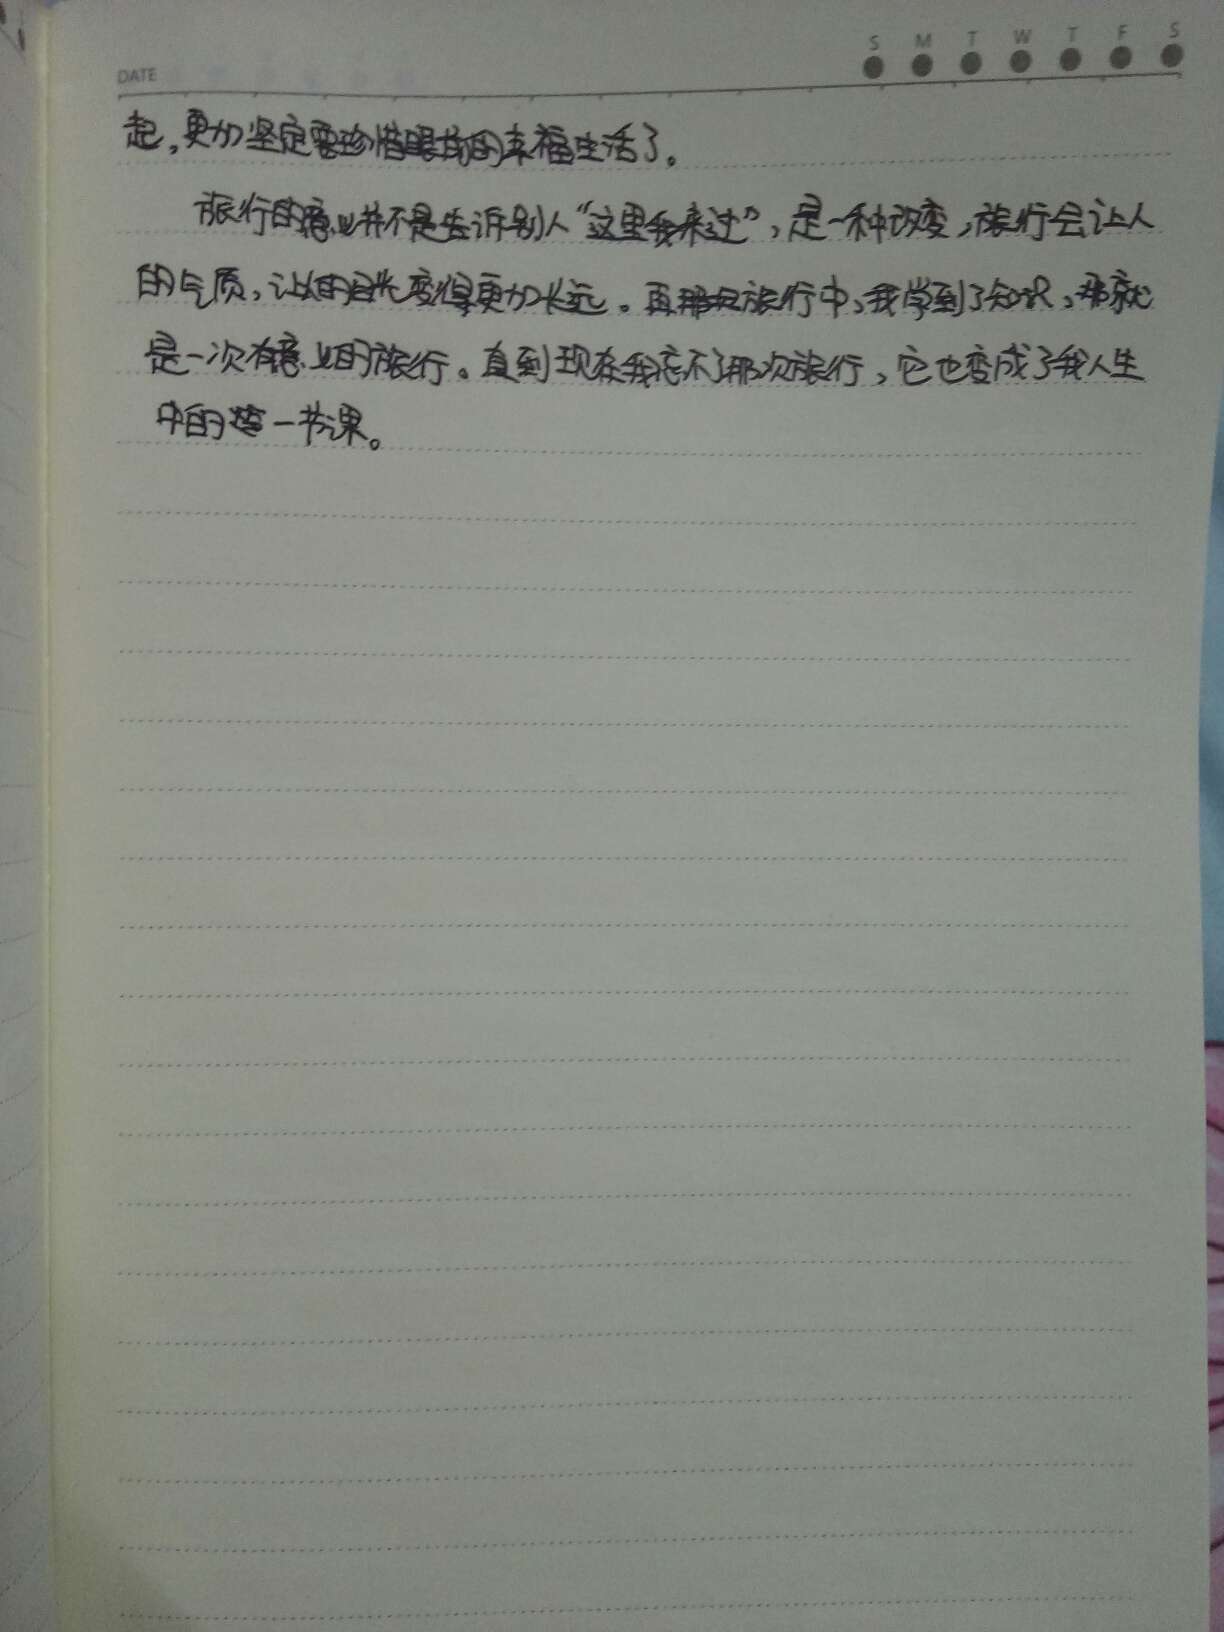 DATE
S M T W T F S
起,更加坚定要珍惜眼前的幸福生活了。
旅行的意义并不是告诉别人“这里我来过”,是一种改变,旅行会让人
的气质,让人的目光变得更加长远。再那次旅行中,我学到了知识,那就
是一次有意义的旅行。直到现在我忘不了那次旅行,它也变成了我人生
中的一节课。